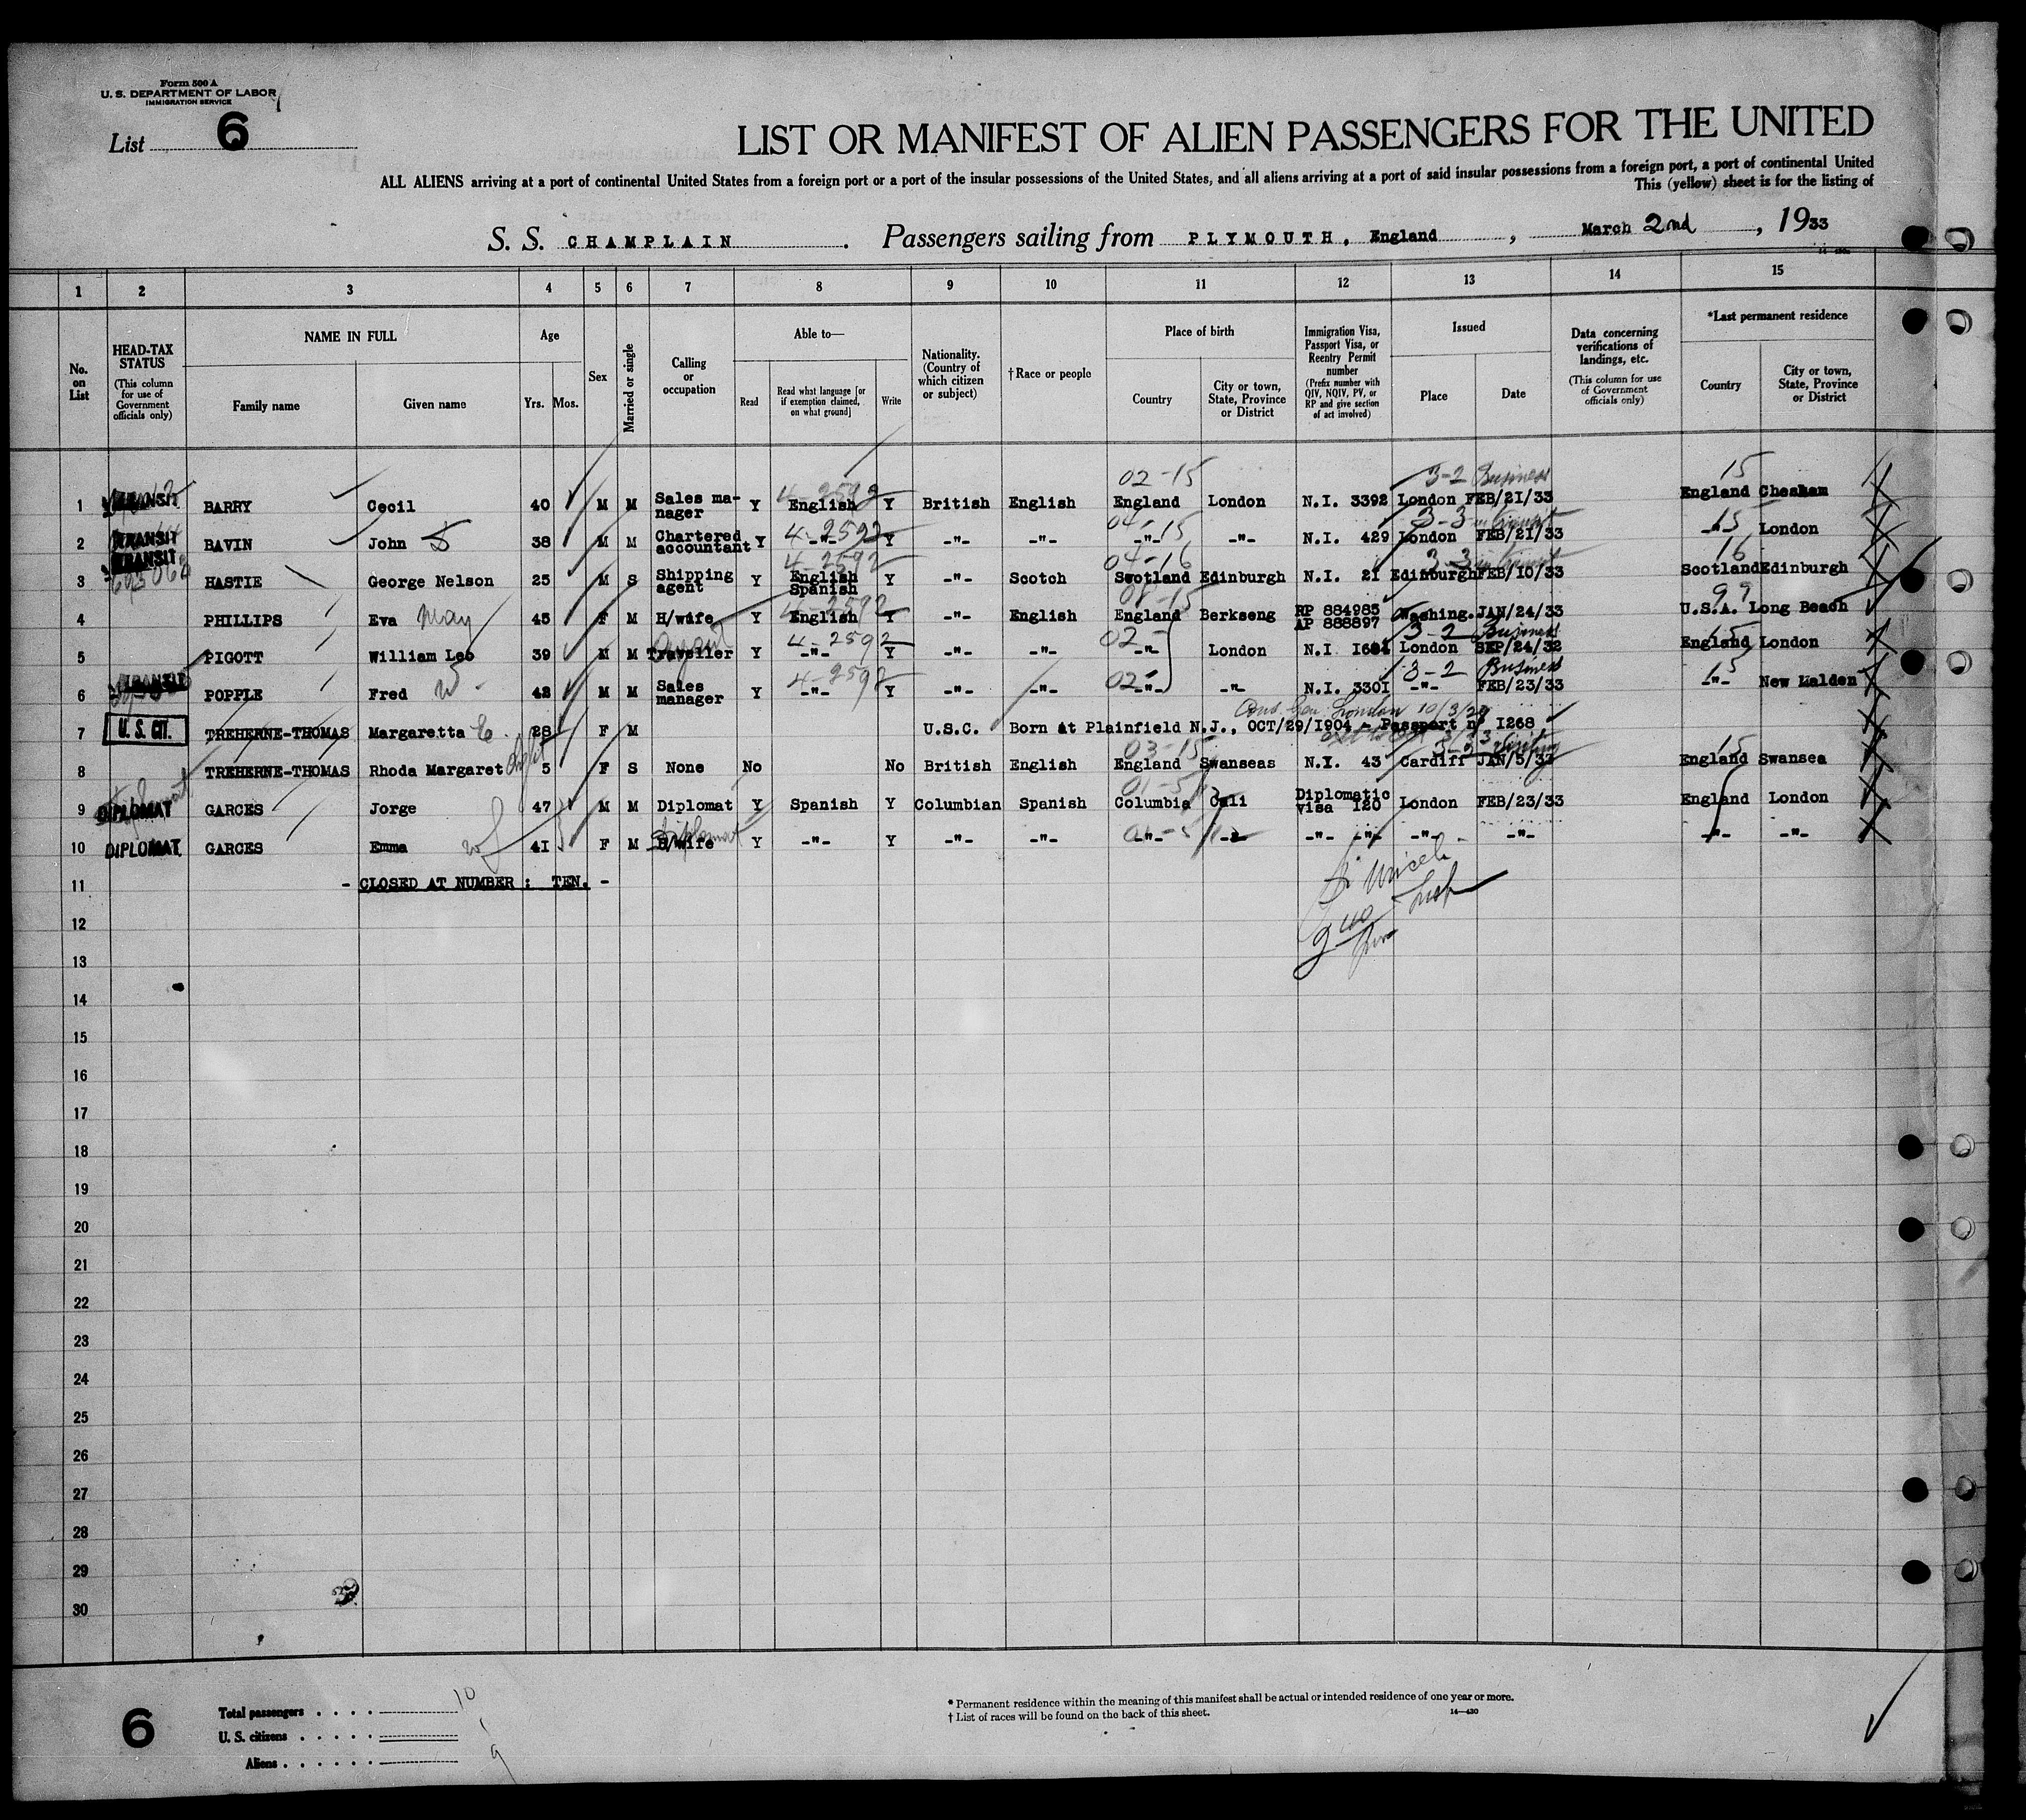 Form 500 A
U. S. DEPARTMENT OF LABOR
IMMIGRATION SERVICE
List 6
LIST OR MANIFEST OF ALIEN PASSENGERS FOR THE UNITED
ALL ALIENS arriving at a port of continental United States from a foreign port or a port of the insular possessions of the United States, and all aliens arriving at a port of said insular possessions from a foreign port, a port of continental United
This (yellow) sheet is for the listing of
S. S. CHAMPLAIN . Passengers sailing from PLYMOUTH, England , March 2nd , 1933
1 2 3 4 5 6 7 8 9 10 11 12 13 14 15
No. on List
HEAD-TAX STATUS (This column for use of Government officials only)
NAME IN FULL
Family name Given name
Age
Yrs. Mos.
Sex
Married or single
Calling or occupation
Able to—
Read Read what language [or if exemption claimed, on what ground] Write
Nationality. (Country of which citizen or subject)
†Race or people
Place of birth
Country City or town, State, Province or District
Immigration Visa, Passport Visa, or Reentry Permit number (Prefix number with QIV, NQIV, PV, or RP and give section of act involved)
Issued
Place Date
Data concerning verifications of landings, etc. (This column for use of Government officials only)
*Last permanent residence
Country City or town, State, Province or District
02-15 3-2 Business 15
1 TRANSIT BARRY Cecil 40 M M Sales manager Y 4-2592 English Y British English England London N.I. 3392 London FEB/21/33 England Chesham
04-15 3-3 in transit 15
2 TRANSIT BAVIN John S 38 M M Chartered accountant Y 4-2592 -"- Y -"- -"- -"- -"- N.I. 429 London FEB/21/33 -"- London
04-16 3-3 in transit 16
3 TRANSIT HASTIE George Nelson 25 M S Shipping agent Y 4-2592 English Spanish Y -"- Scotch Scotland Edinburgh N.I. 21 Edinburgh FEB/10/33 Scotland Edinburgh
01-15 99
4 PHILLIPS Eva May 45 F M H/wife Y 4-2592 English Y -"- English England Berkseng RP 884985 AP 888897 Washing. JAN/24/33 U.S.A. Long Beach
02- 3-2 Business 15
5 PIGOTT William Leo 39 M M Traveller Y 4-2592 -"- Y -"- -"- -"- London N.I 1684 London SEP/24/32 England London
02- 3-2 Business 15
6 TRANSIT POPPLE Fred W 42 M M Sales manager Y 4-2592 -"- Y -"- -"- -"- -"- N.I. 3301 -"- FEB/23/33 -"- New Malden
London 10/3/29
7 U. S. CIT. TREHERNE-THOMAS Margaretta E. 28 F M U.S.C. Born at Plainfield N.J., OCT/29/1904 - Passport n° 1268
03-15 3-2 visiting 15
8 TREHERNE-THOMAS Rhoda Margaret 5 F S None No No British English England Swanseas N.I. 43 Cardiff JAN/5/33 England Swansea
9 DIPLOMAT GARCES Jorge 47 M M Diplomat Y Spanish Y Columbian Spanish Columbia Cali Diplomatic visa 120 London FEB/23/33 England London
10 DIPLOMAT GARCES Emma wf 41 F M H/wife Diplomat Y -"- Y -"- -"- -"- -"- -"- -"- -"- -"- -"- -"-
11 - CLOSED AT NUMBER : TEN. -
12
13
14
15
16
17
18
19
20
21
22
23
24
25
26
27
28
29
30
6
Total passengers . . . . 10
U. S. citizens . . . . . 1
Aliens . . . . . . 9
* Permanent residence within the meaning of this manifest shall be actual or intended residence of one year or more.
† List of races will be found on the back of this sheet.
14—430